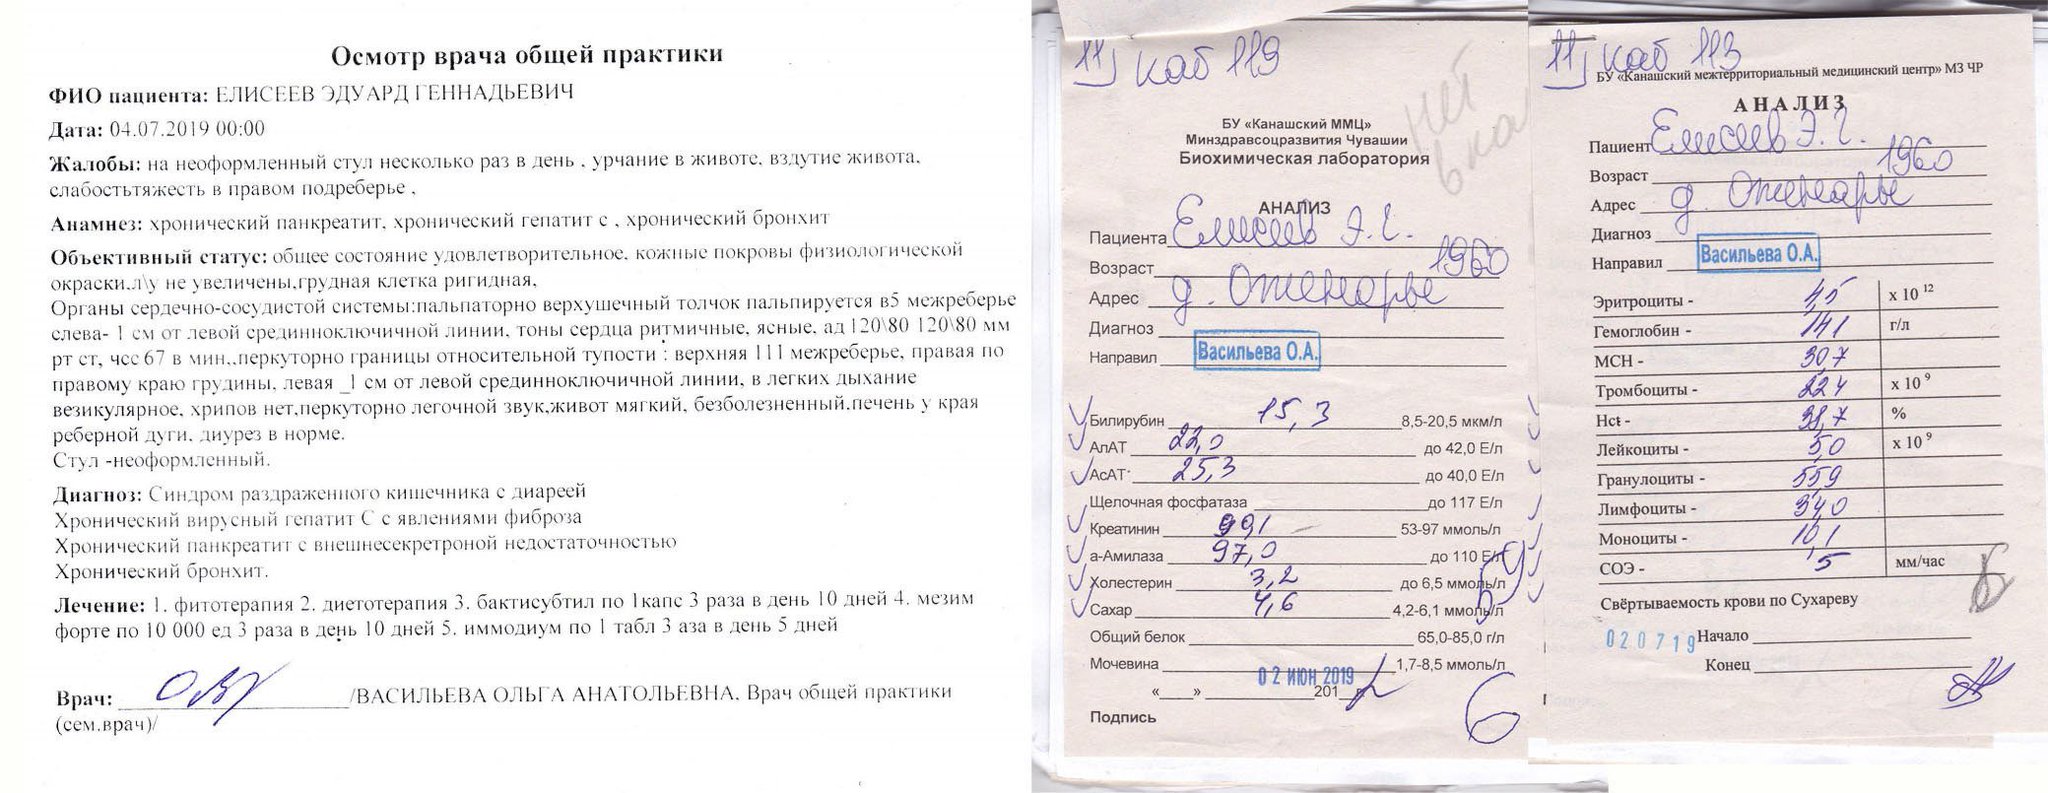 Осмотр врача общей практики
ФИО пациента: ЕЛИСЕЕВ ЭДУАРД ГЕННАДЬЕВИЧ
Дата: 04.07.2019 00:00
Жалобы: на неоформленный стул несколько раз в день , урчание в животе, вздутие живота,
слабостьтяжесть в правом подреберье ,
Анамнез: хронический панкреатит, хронический гепатит с , хронический бронхит
Объективный статус: общее состояние удовлетворительное, кожные покровы физиологической
окраски,л\у не увеличены,грудная клетка ригидная,
Органы сердечно-сосудистой системы:пальпаторно верхушечный толчок пальпируется в5 межреберье
слева- 1 см от левой срединноключичной линии, тоны сердца ритмичные, ясные, ад 120\80 120\80 мм
рт ст, чсс 67 в мин,,перкуторно границы относительной тупости : верхняя 111 межреберье, правая по
правому краю грудины, левая _1 см от левой срединноключичной линии, в легких дыхание
везикулярное, хрипов нет,перкуторно легочной звук,живот мягкий, безболезненный,печень у края
реберной дуги, диурез в норме.
Стул -неоформленный.
Диагноз: Синдром раздраженного кишечника с диареей
Хронический вирусный гепатит С с явлениями фиброза
Хронический панкреатит с внешнесекретроной недостаточностью
Хронический бронхит.
Лечение: 1. фитотерапия 2. диетотерапия 3. бактисубтил по 1капс 3 раза в день 10 дней 4. мезим
форте по 10 000 ед 3 раза в день 10 дней 5. иммодиум по 1 табл 3 аза в день 5 дней
Врач: /ВАСИЛЬЕВА ОЛЬГА АНАТОЛЬЕВНА, Врач общей практики
(сем.врач)/
11) каб 119
нет
БУ «Канашский ММЦ»
Минздравсоцразвития Чувашии
Биохимическая лаборатория
АНАЛИЗ
Пациента Елисеев Э.Г.
Возраст 1960
Адрес д. Оженары
Диагноз
Направил Васильева О.А.
Билирубин 15,3 8,5-20,5 мкм/л
АлАТ 22,0 до 42,0 Е/л
АсАТ 25,3 до 40,0 Е/л
Щелочная фосфатаза до 117 Е/л
Креатинин 99,1 53-97 ммоль/л
а-Амилаза 97,0 до 110 Е/л
Холестерин 3,2 до 6,5 ммоль/л
Сахар 4,6 4,2-6,1 ммоль/л
Общий белок 65,0-85,0 г/л
Мочевина 1,7-8,5 ммоль/л
02 ИЮН 2019
«___» 201 г.
Подпись
б
11) каб 113
БУ «Канашский межтерриториальный медицинский центр» МЗ ЧР
АНАЛИЗ
Пациент Елисеев Э.Г.
Возраст 1960
Адрес д. Оженары
Диагноз
Направил Васильева О.А.
Эритроциты - 4,5 х 10 12
Гемоглобин - 141 г/л
МСН - 30,7
Тромбоциты - 224 х 10 9
Hct - 38,7 %
Лейкоциты - 5,0 х 10 9
Гранулоциты - 559
Лимфоциты - 340
Моноциты - 10,1
СОЭ - 5 мм/час
б
Свёртываемость крови по Сухареву
020719 Начало
Конец